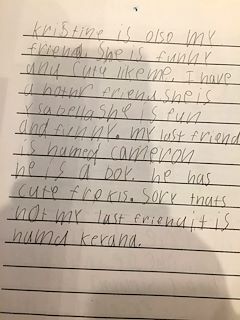 kristine is olso my
friend. She is funny
and cute like me. I have
a nothr friend she is
ysabella she is fun
and funny. my last friend
is named cameron
he is a boy. he has
cute frekis. Sory thats
not my last friend it is
namd kerana.